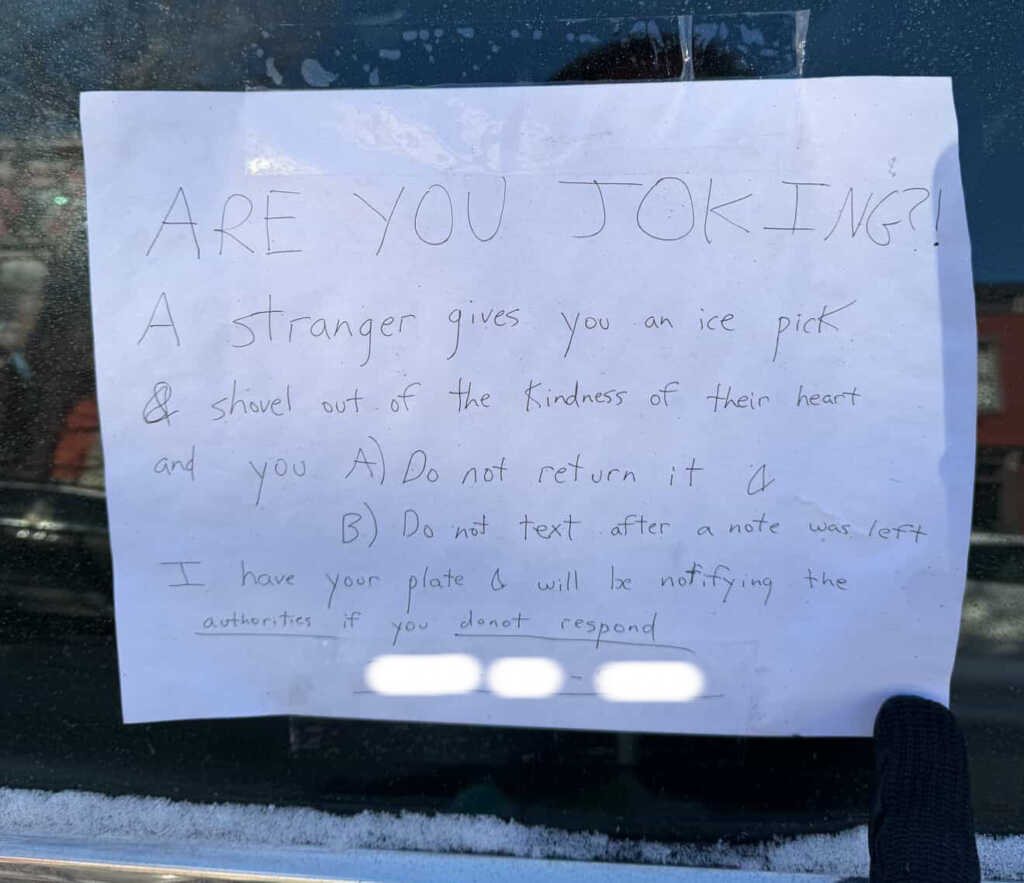 ARE YOU JOKING?!
A stranger gives you an ice pick
& shovel out of the kindness of their heart
and you A) Do not return it &
B.) Do not text after a note was left
I have your plate & will be notifying the
authorities if you donot respond
-